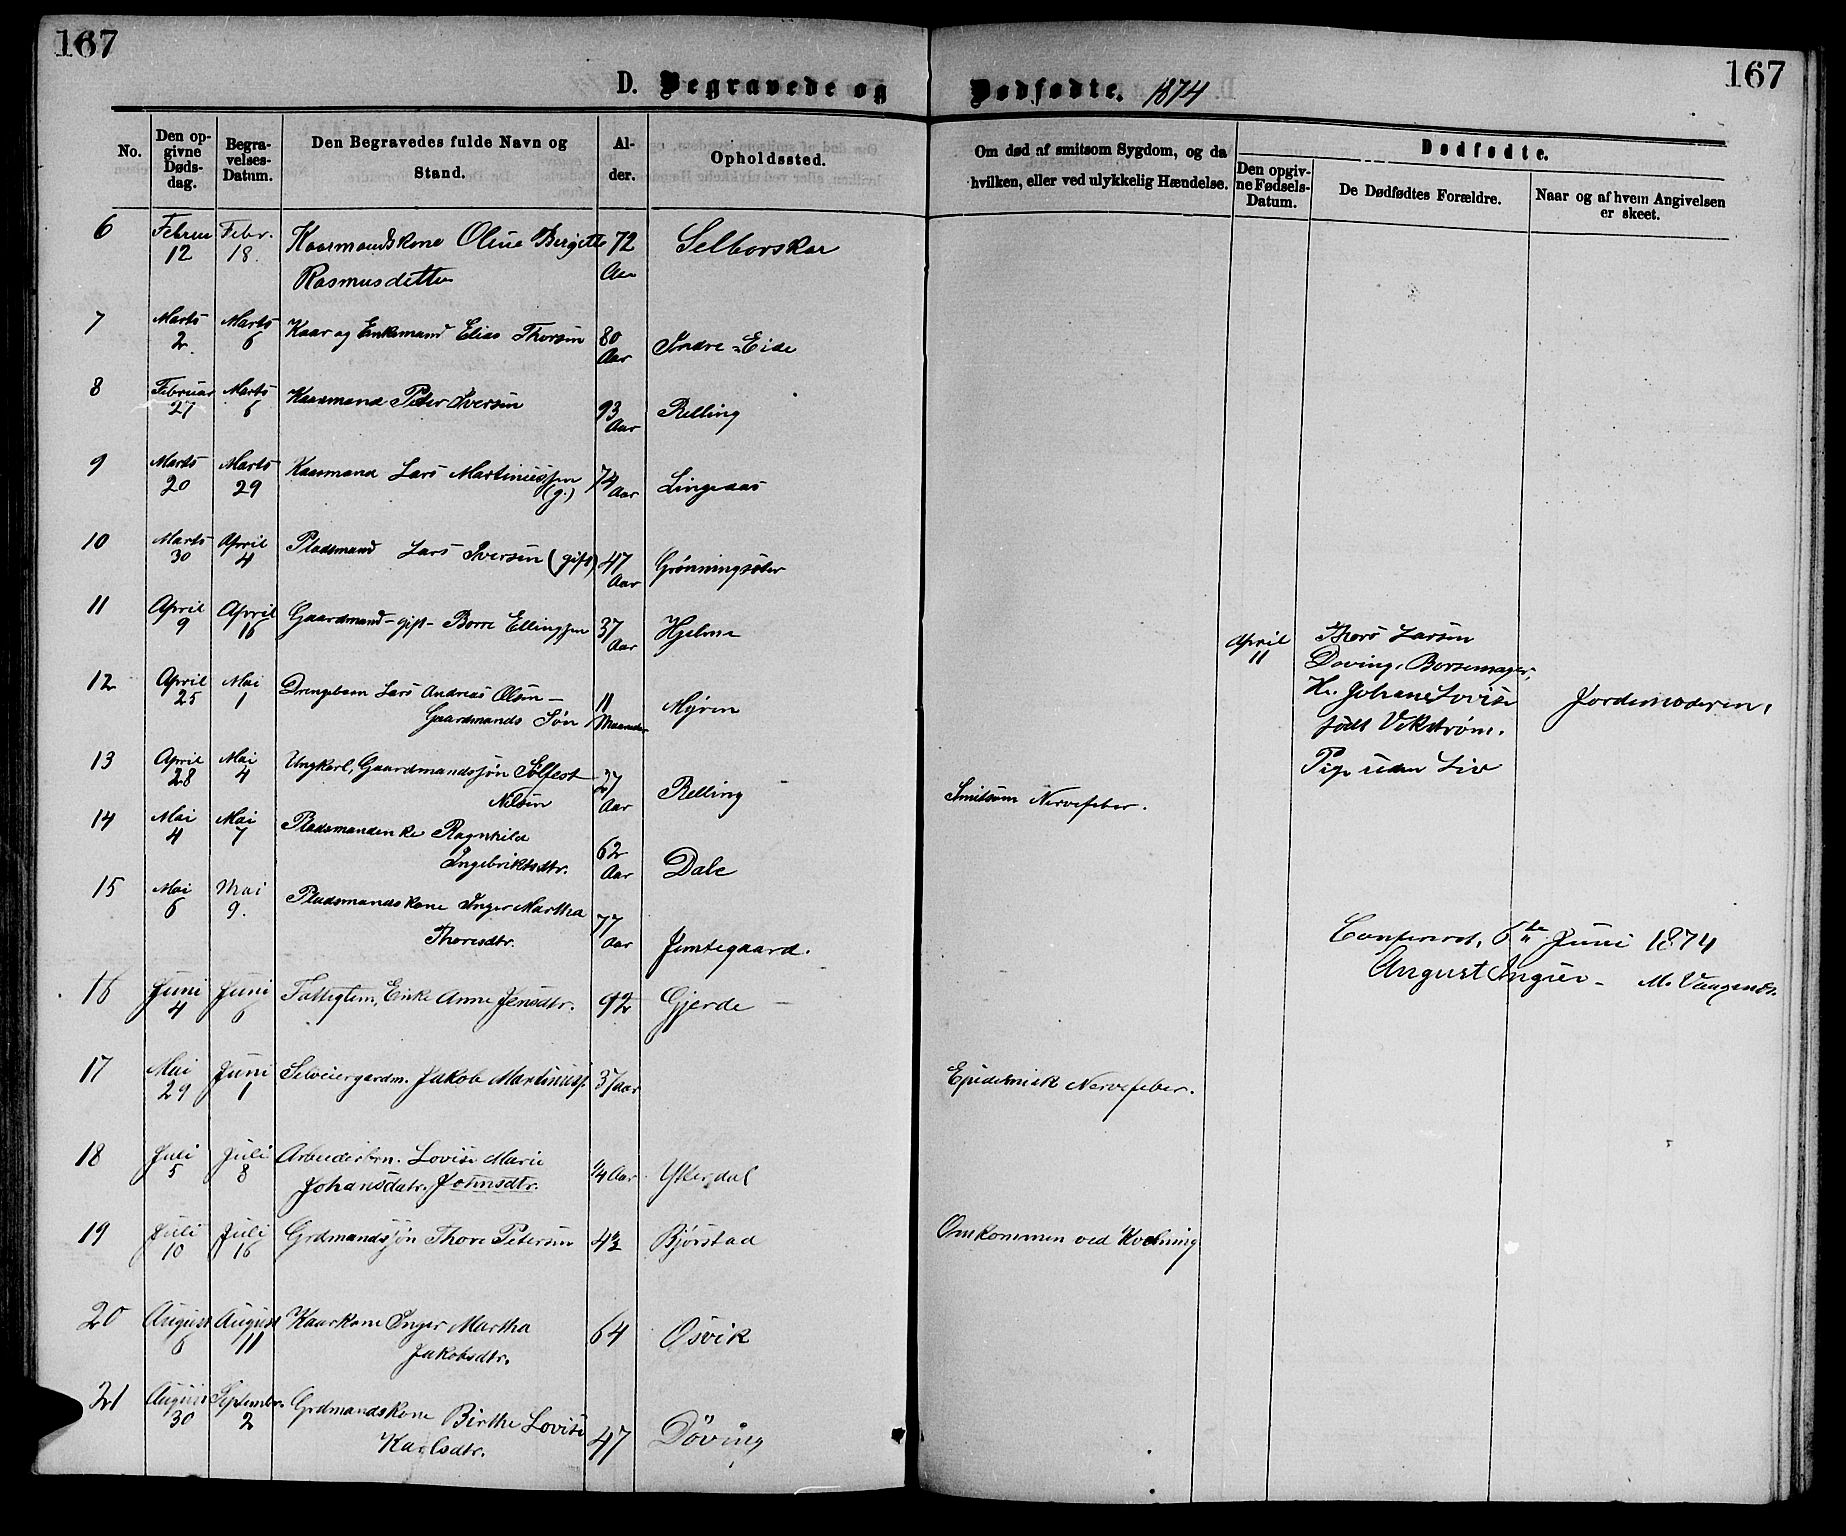 167
167
D. Begravede og Dødfødte. 1874
No.
Den opgivne Dødsdag.
Begravelses-Datum.
Den Begravedes fulde Navn og Stand.
Alder.
Opholdssted.
Om død af smitsom Sygdom, og da hvilken, eller ved ulykkelig Hændelse.
Dødfødte.
Den opgivne Fødsels-Datum.
De Dødfødtes Forældre.
Naar og af hvem Angivelsen er skeet.
6 Februar 12 Febr. 18. Kaarmandskone Oline Birgitte 72 Aar
Rasmusdatter
7 Marts 2. Marts 6 Kaar og Enkemand Elias Thorsen 80 Aar Indre-Eide
8 Februar 27 Marts 6 Kaarmand Peter Iversen 93 Aar Relling
9 Marts 20 Marts 29 Kaarmand Lars Martinussen 74 Aar Lingeaas
(g.)
10 Marts 30 April 4 Pladsmand Lars Iversen (gift) 47 Aar
11 April 9 April 16 Gaardmand-gift- Borre Ellingsen 37 Aar Hjelme
12 April 25 Mai 1 Drengebarn Lars Andreas Olsen- 11 Maaneder Myren
Gaardmands Søn
April 11 Thors Larsen
Døving, Børsemager,
Johane Lovise
født Vikstrøm.
Pige uden Liv
Jordemoderen,
13 April 28 Mai 4 Ungkarl, Gaardmandssøn Sølfest 27 Aar Relling Smitsom Nervefeber.
Nilsen
14 Mai 4 Mai 7 Pladsmandenke Ragnhild 62 Aar Dale
Ingebriktsdtr.
15 Mai 6 Mai 9. Pladsmandskone Inger Martha 77 Aar Jemtegaard.
Thoresdtr.
Confereret, 6te Juni 1874
August
16 Juni 4 Juni 6 Fattiglem, Enke Anne Jensdtr. 92 Gjerde
17 Mai 29 Juni 1 Selveiergardm. Jakob Martinussen 37 aar Epidemisk Nervefeber.
18 Juli 5 Juli 8 Arbeiderbrn. Lovise Marie 1/4 Aar
Johansdatr. Johnsdtr.
19 Juli 10 Juli 16 Grdmandssøn Thore Petersen 43 Bjørstad Omkommen ved Kvelning
20 August 6 August 11 Kaarkone Inger Martha 64 Osvik
Jakobsdtr.
21 August 30 Septembr. 2 Grdmandskone Birthe Lovise 47 Døving
Karlsdtr.